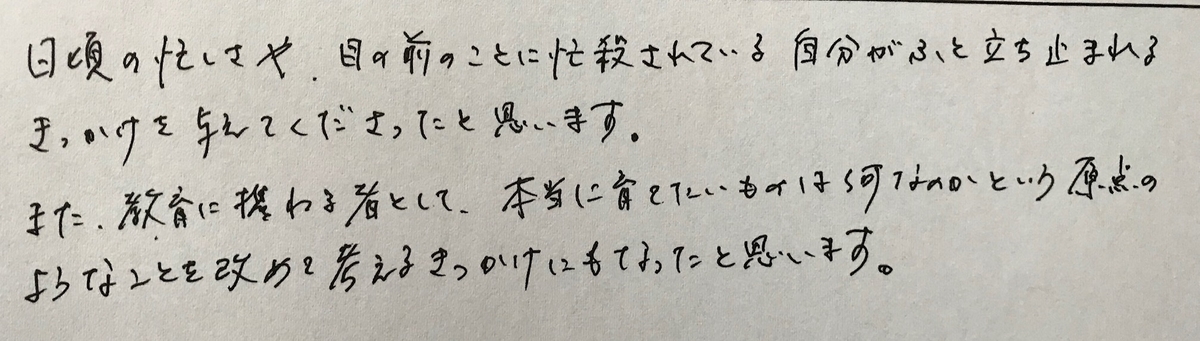 日頃の忙しさや、目の前のことに忙殺されている自分がふと立ち止まれる
きっかけを与えてくださったと思います。
また、教育に携わる者として、本当に育てたいものは何なのかという原点の
ようなことを改めて考えるきっかけにもなったと思います。